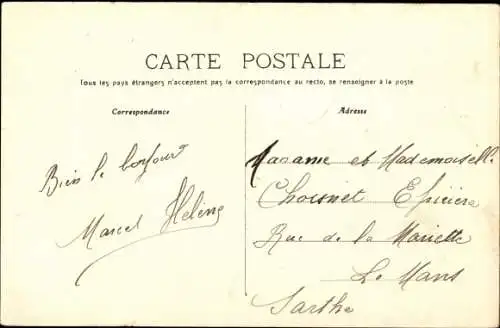 CARTE POSTALE
Tous les pays étrangers n'acceptent pas la correspondance au recto, se renseigner à la poste
Correspondance
Adresse
Bien le bonjour
Marcel Hélène
Madame et Mademoiselle
Choisnet Epicière
Rue de la Mariette
Le Mans
Sarthe